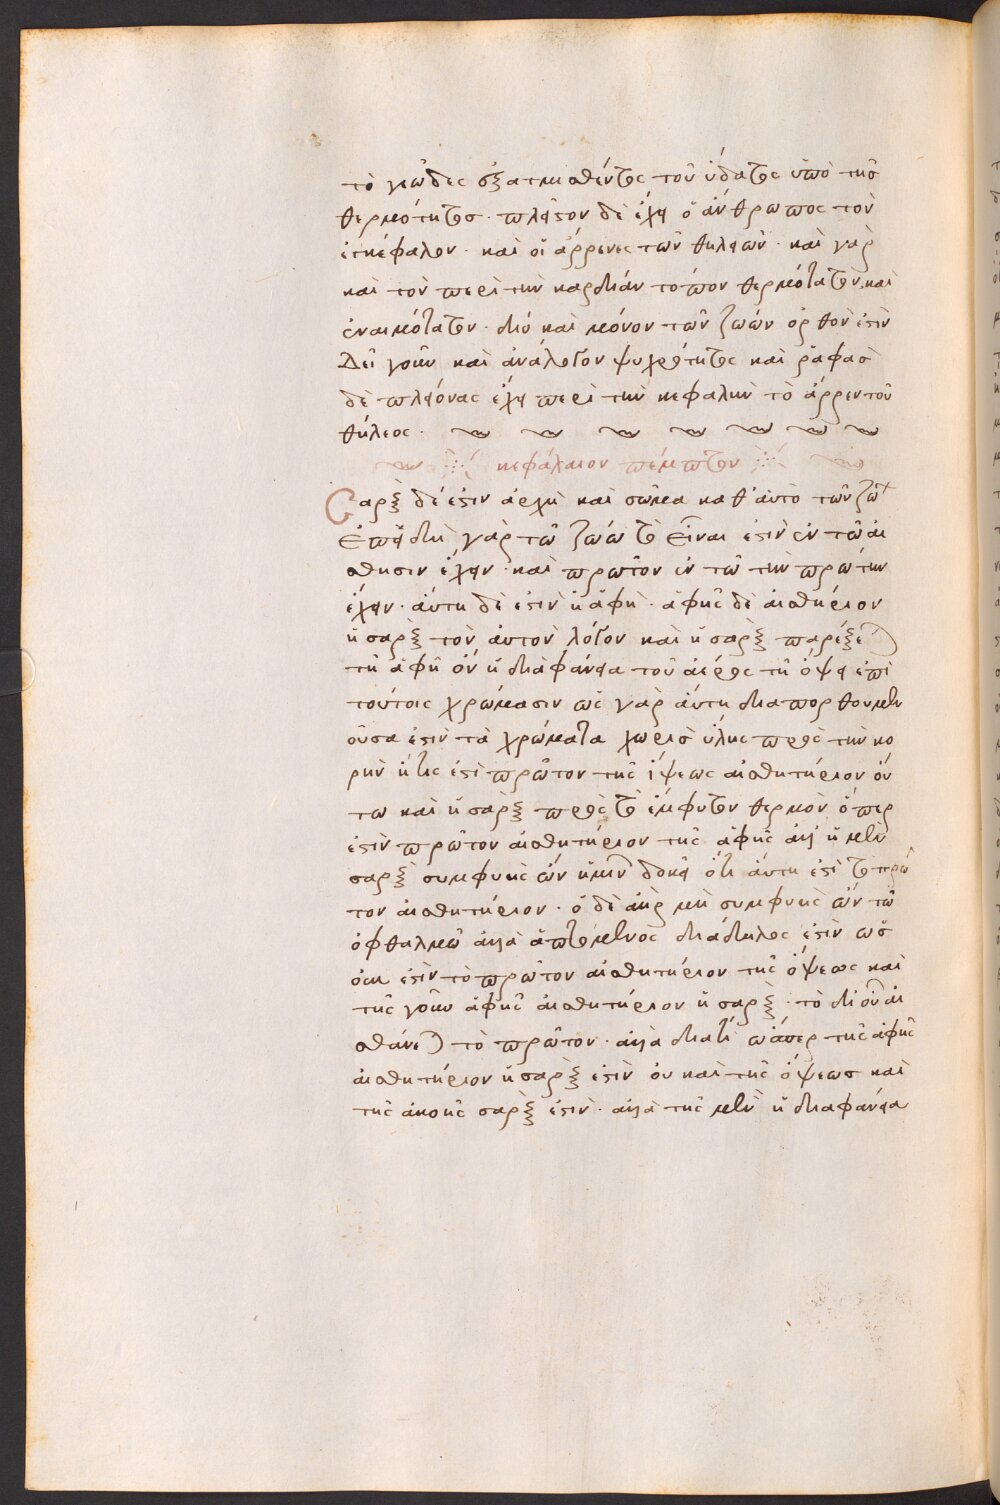 τὸ γεῶδες ἐξατμισθέντος τοῦ ὕδατος ὑπὸ τῆς
θερμότητος. πλεῖστον δὲ ἔχει ὁ ἄνθρωπος τὸν
ἐγκέφαλον. καὶ οἱ ἄρρενες τῶν θηλειῶν. καὶ γὰρ
καὶ τὸν περὶ τὴν καρδίαν τόπον θερμότατον, καὶ
ἐναιμότατον. διό καὶ μόνον τῶν ζώων ὀρθόν ἐστιν
Δεῖ γοῦν καὶ ἀνάλογον ψυχρότητος καὶ ῥαφὰσ
δὲ πλείονας ἔχει περὶ τὴν κεφαλὴν τὸ ἄρρεν τοῦ
θήλεος.
κεφάλαιον πέμπτον
Σαρξ δέ ἐστιν ἀρχὴ καὶ σῶμα καθ' αὑτὸ τῶν ζώων
Ἐπειδὴ γὰρ τῶ ζώω τὸ εἶναι ἐστὶν ἐν τῶ αἴ
σθησιν ἔχειν. καὶ πρῶτον ἐν τῶ τὴν πρώτην
ἔχειν. αὕτη δέ ἐστιν ἡ ἁφή. ἁφῆς δὲ αἰσθητήριον
ἡ σαρξ τὸν αὐτὸν λόγον καὶ ἡ σαρξ παρέξεται
τῆ ἁφῆ ὃν ἡ διαφάνεια τοῦ ἀέρος τῆ ὄψει ἐπὶ
τούτοις χρώμασιν ὡς γὰρ αὕτη διαπορθουμένη
οὖσα ἐστὶν τὰ χρώματα χωρὶς ὕλης πρὸς τὴν κό
ρην ἥτις ἐστὶ πρῶτον τῆς ὄψεως αἰσθητήριον οὕ
τω καὶ ἡ σαρξ πρὸς τὸ ἔμφυτον θερμὸν ὅπερ
ἐστὶν πρῶτον αἰσθητήριον τῆς ἁφῆς ἀλλ' ἡ μὲν
σαρξ συμφυὴς ὢν ἡμῖν δοκεῖ ὅτι αὕτη ἐστὶ τὸ πρῶ
τον αἰσθητήριον. ὁ δὲ ἀὴρ μὴ συμφυὴς ὢν τῶ
ὀφθαλμῶ ἀλλὰ ἁπτόμενος διάδηλος ἐστὶν ὡς
οὐκ ἐστὶν τὸ πρῶτον αἰσθητήριον τῆς ὄψεως καὶ
τῆς γοῦν ἁφῆς αἰσθητήριον ἡ σαρξ. τὸ δι' οὗ αἰ
σθάνεται τὸ πρῶτον. ἀλλὰ διατί ὥσπερ τῆς ἁφῆς
αἰσθητήριον ἡ σαρξ ἐστὶν οὐ καὶ τῆς ὄψεως καὶ
τῆς ἀκοῆς σαρξ ἐστὶν. ἀλλὰ τῆς μὲν ἡ διαφάνεια